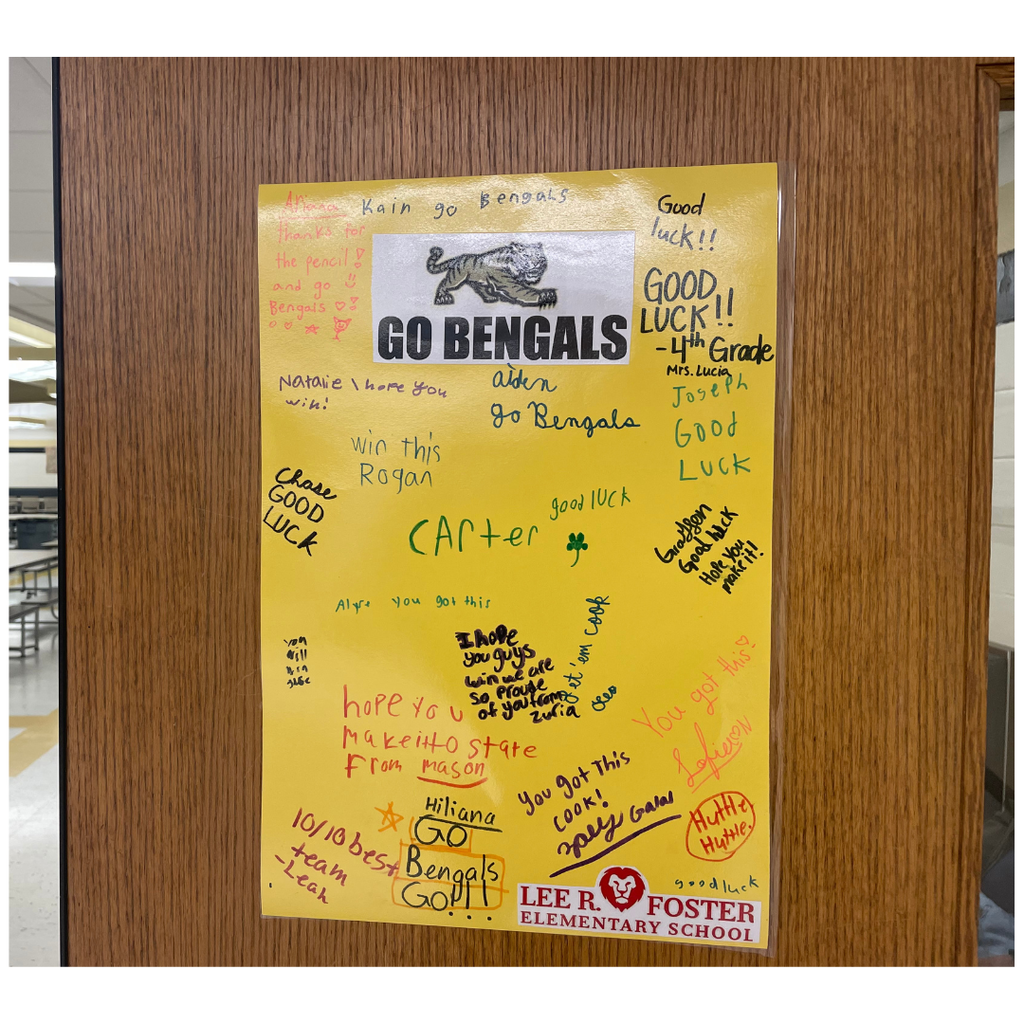 Kain go Bengals
thanks for
the pencil!
and go
Bengals
Good
luck!!
GO BENGALS
GOOD
LUCK!!
-4th Grade
Mrs. Lucia
Natalie I hope you
win!
aiden
go Bengals
Joseph
Good
Luck
win this
Rogan
Chase
GOOD
LUCK
CArter good luck
Good luck
Hope you
make it!
you got this
let 'em cook
I hope
you guys
win we are
so proude
of you from
Zuria
You
Will
Win
hope you
makeitto state
From mason
You got this!
You got This
COOK!
Huttle,
Huttle.
10/10 best
team
-Leah
Hiliana
GO
Bengals
GO!!!...
goodluck
LEE R. FOSTER
ELEMENTARY SCHOOL